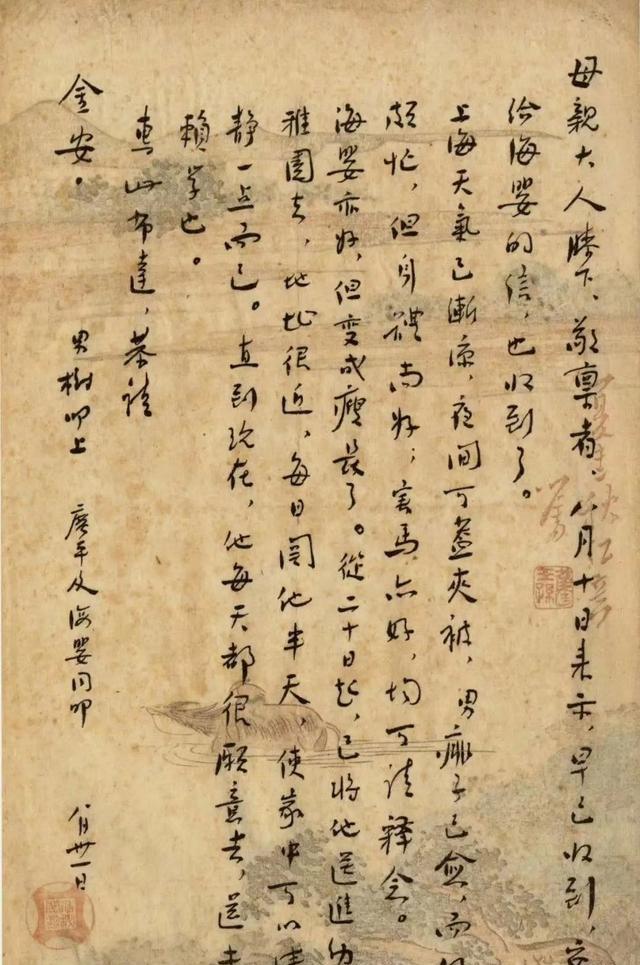 母親大人膝下,敬稟者,八月十日来示,早已收到,
給海嬰的信,也收到了。
上海天氣已漸涼,夜间可蓋夾被,男痱子已愈,而
頗忙,但身體尚好;害馬亦好,均可請釋念。
海嬰亦好,但变成瘦長了。從二十日起,已將他送進幼
稚園去,地址很近,每日関他半天,使家中可以清
靜一点而已。直到現在,他每天都很願意去,還未
賴学也。
專此布達,恭請
金安。
男樹叩上 廣平及海嬰同叩 八月卅一日